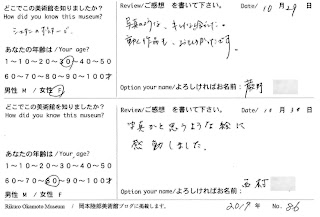 どこでこの美術館を知りましたか?
How did you know this museum?
ショサンのポスターで。
あなたの年齢は/Your age?
1〜10〜20〜30〜40〜50
60〜70〜80〜90〜100才
男性 M / 女性 F
Review/ご感想 を書いて下さい。 Date/ 10月29日
写真のような、キレイな絵でした。
作品も、おもしろかったです。
Option your name/よろしければお名前:
どこでこの美術館を知りましたか?
How did you know this museum?
あなたの年齢は/Your age?
1〜10〜20〜30〜40〜50
60〜70〜80〜90〜100才
男性 M / 女性 F
Review/ご感想 を書いて下さい。 Date/ 10月30日
写真かと思うような絵に
感動しました。
Option your name/よろしければお名前: 西村
Rikuro Okamoto Museum / 岡本陸郎美術館ブログに掲載します。 2019年 No. 86